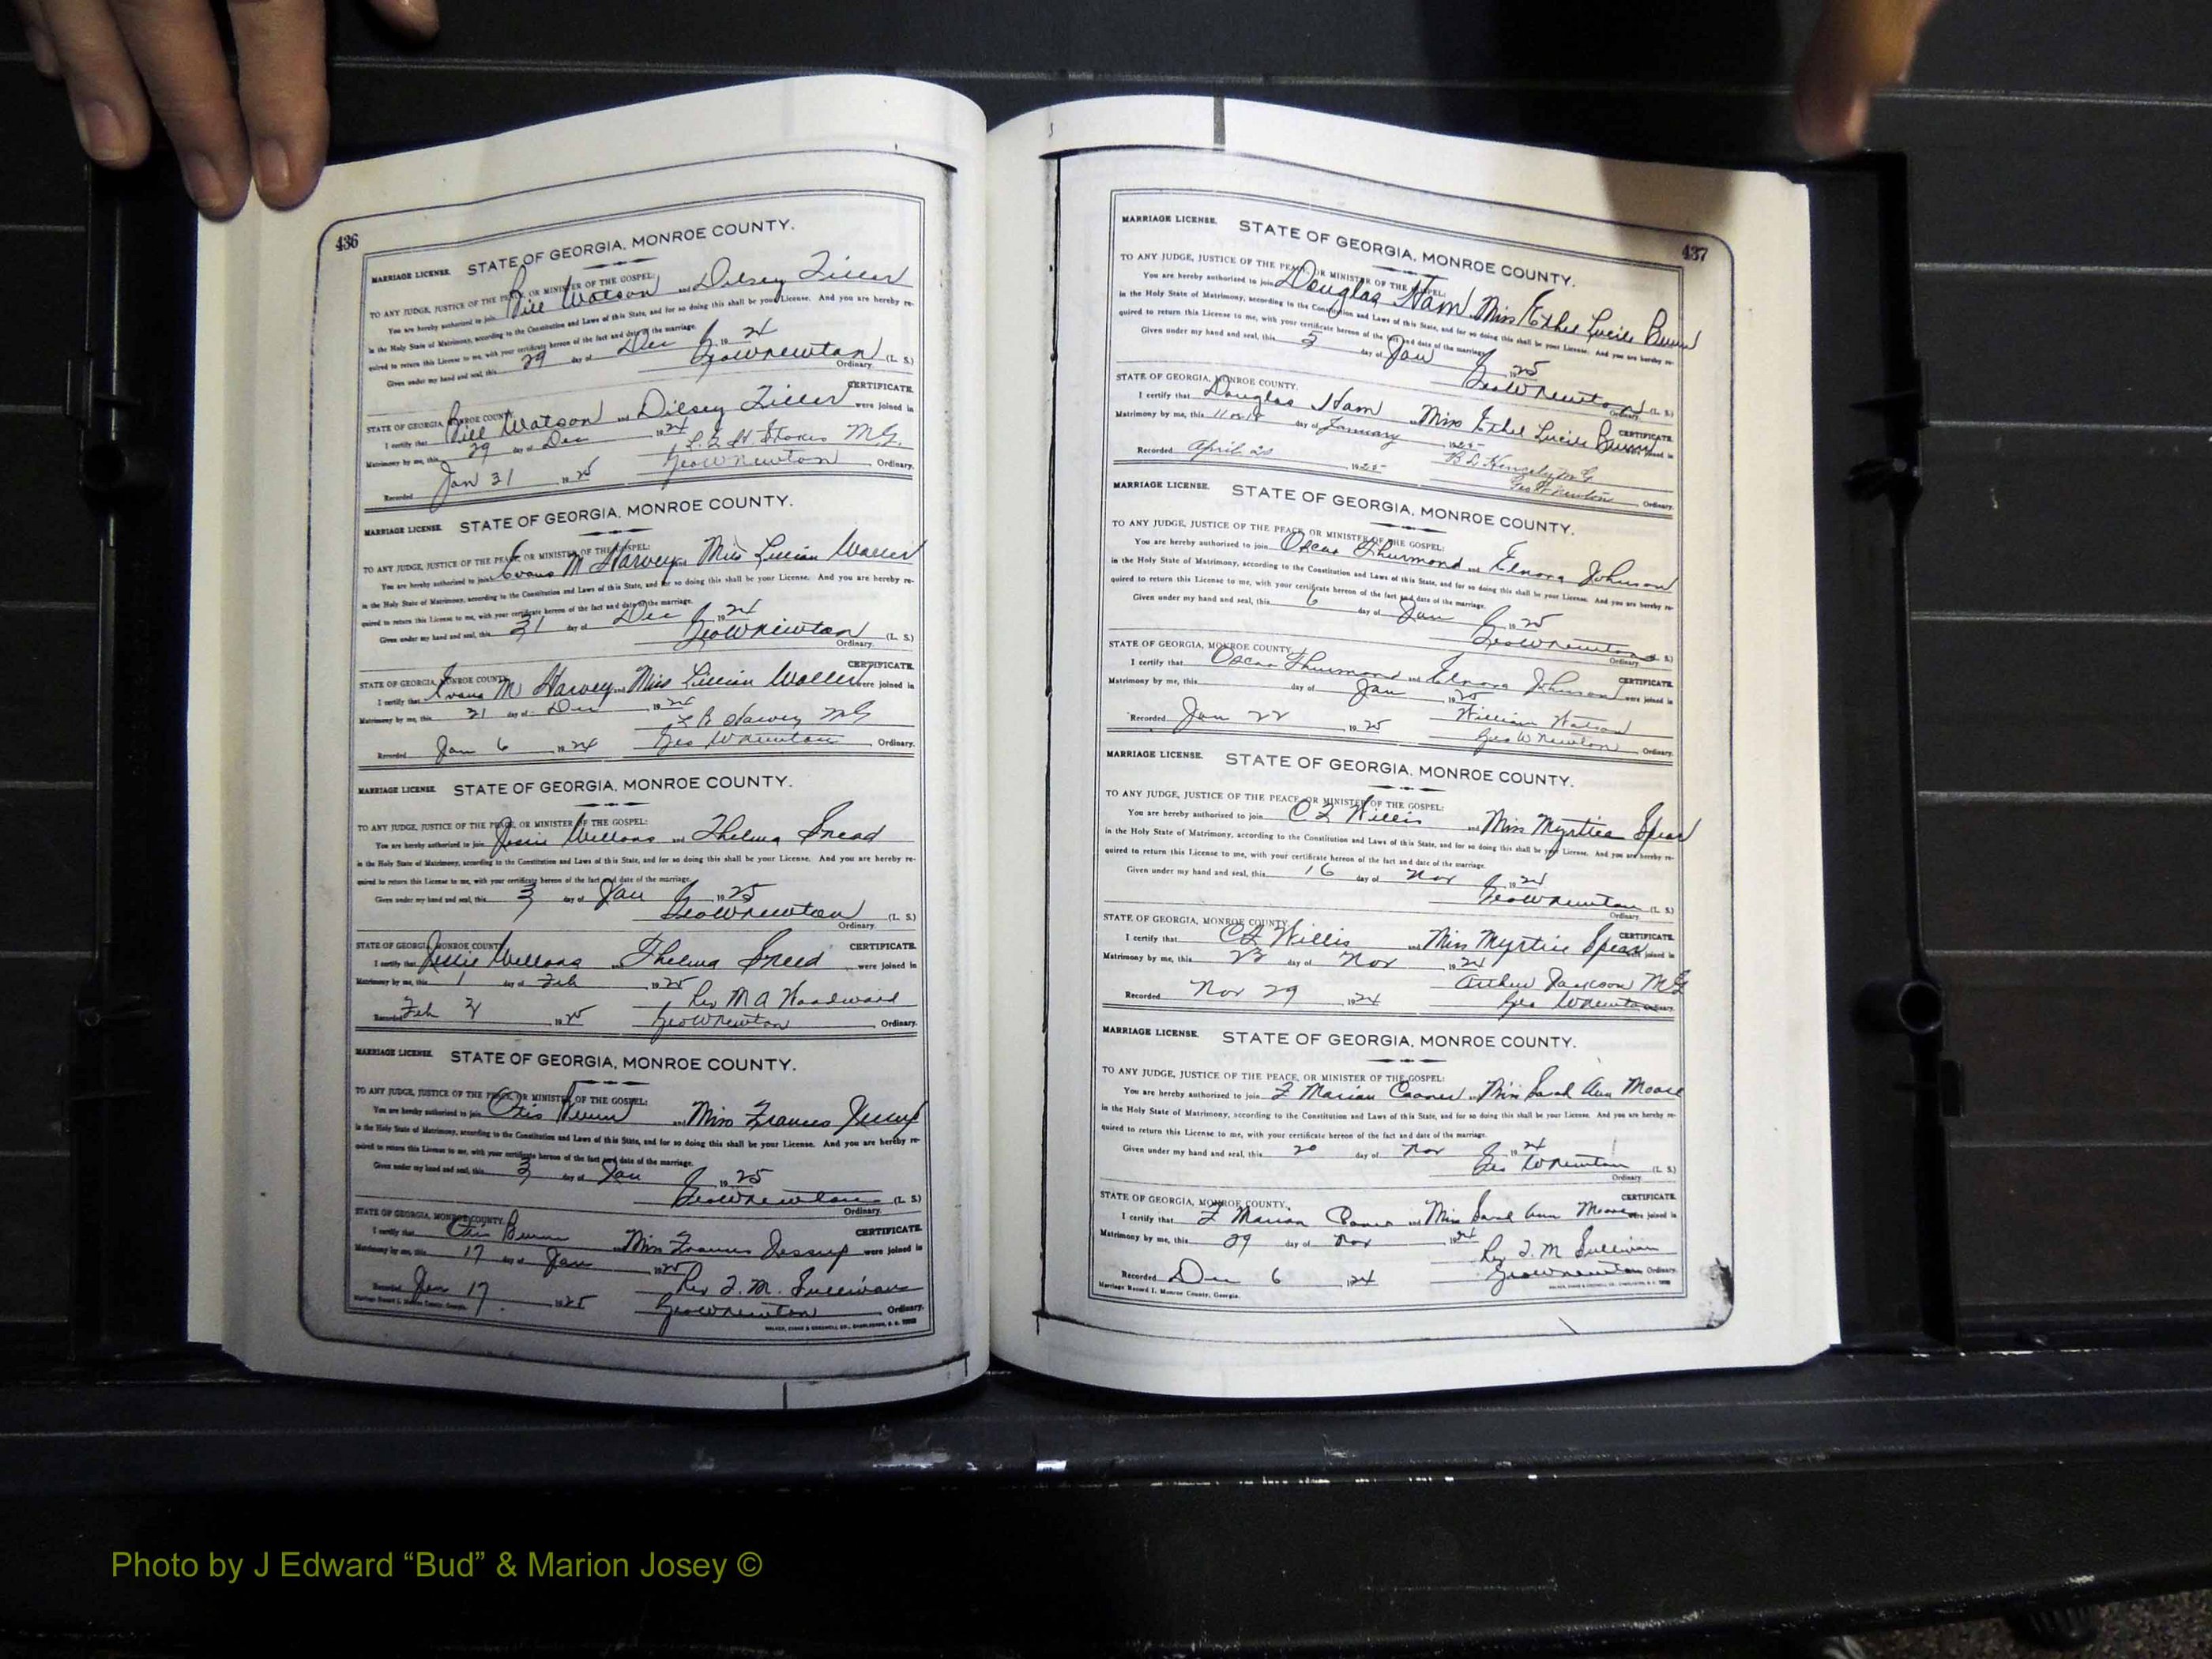 436
MARRIAGE LICENSE. STATE OF GEORGIA, MONROE COUNTY.
TO ANY JUDGE, JUSTICE OF THE PEACE, OR MINISTER OF THE GOSPEL:
You are hereby authorized to join Bill Watson and Dilsey
in the Holy State of Matrimony, according to the Constitution and Laws of this State, and for so doing this shall be your License. And you are hereby re-
quired to return this License to me, with your certificate hereon of the fact and date of the marriage.
Given under my hand and seal, this 29 day of Dec 1924
Geo W Newton (L. S.)
Ordinary.
STATE OF GEORGIA, MONROE COUNTY. CERTIFICATE.
I certify that Bill Watson and Dilsey were joined in
Matrimony by me, this 29 day of Dec 1924
M.G.
Recorded Jan 31 1925 Geo W Newton Ordinary.
MARRIAGE LICENSE. STATE OF GEORGIA, MONROE COUNTY.
TO ANY JUDGE, JUSTICE OF THE PEACE, OR MINISTER OF THE GOSPEL:
You are hereby authorized to join Evans M Harvey and Miss Lillian Waller
in the Holy State of Matrimony, according to the Constitution and Laws of this State, and for so doing this shall be your License. And you are hereby re-
quired to return this License to me, with your certificate hereon of the fact and date of the marriage.
Given under my hand and seal, this 31 day of Dec 1924
Geo W Newton (L. S.)
Ordinary.
CERTIFICATE.
STATE OF GEORGIA, MONROE COUNTY.
I certify that Evans M Harvey and Miss Lillian Waller were joined in
Matrimony by me, this 31 day of Dec 1924
Harvey MG
Recorded Jan 6 1924 Geo W Newton Ordinary.
MARRIAGE LICENSE. STATE OF GEORGIA, MONROE COUNTY.
TO ANY JUDGE, JUSTICE OF THE PEACE, OR MINISTER OF THE GOSPEL:
You are hereby authorized to join Jessie and Thelma Snead
in the Holy State of Matrimony, according to the Constitution and Laws of this State, and for so doing this shall be your License. And you are hereby re-
quired to return this License to me, with your certificate hereon of the fact and date of the marriage.
Given under my hand and seal, this 3 day of Jan 1925
Geo W Newton (L. S.)
Ordinary.
STATE OF GEORGIA, MONROE COUNTY. CERTIFICATE.
I certify that Jessie Thelma Sneed were joined in
Matrimony by me, this 1 day of Feb 1925
Rev M A Woodward
Recorded Feb 1925 Geo W Newton Ordinary.
MARRIAGE LICENSE. STATE OF GEORGIA, MONROE COUNTY.
TO ANY JUDGE, JUSTICE OF THE PEACE, OR MINISTER OF THE GOSPEL:
You are hereby authorized to join Otis Bunn and Miss Frances Jessup
in the Holy State of Matrimony, according to the Constitution and Laws of this State, and for so doing this shall be your License. And you are hereby re-
quired to return this License to me, with your certificate hereon of the fact and date of the marriage.
Given under my hand and seal, this 3 day of Jan 1925
Geo W Newton (L. S.)
Ordinary.
STATE OF GEORGIA, MONROE COUNTY. CERTIFICATE.
I certify that Otis Bunn and Miss Frances Jessup were joined in
Matrimony by me, this 17 day of Jan 1925
Rev J. M. Sullivan
Recorded Jan 17 1925 Geo W Newton Ordinary.
Marriage Record I, Monroe County, Georgia.
437
MARRIAGE LICENSE. STATE OF GEORGIA, MONROE COUNTY.
TO ANY JUDGE, JUSTICE OF THE PEACE, OR MINISTER OF THE GOSPEL:
You are hereby authorized to join Douglas Ham Miss Ethel Lucile Bunn
in the Holy State of Matrimony, according to the Constitution and Laws of this State, and for so doing this shall be your License. And you are hereby re-
quired to return this License to me, with your certificate hereon of the fact and date of the marriage.
Given under my hand and seal, this 5 day of Jan 1925
Geo W Newton (L. S.)
Ordinary.
STATE OF GEORGIA, MONROE COUNTY.
CERTIFICATE.
I certify that Douglas Ham Miss Ethel Lucile Bunn joined in
Matrimony by me, this day of January 1925
M G
Recorded April 20 1925 Geo W Newton Ordinary.
MARRIAGE LICENSE. STATE OF GEORGIA, MONROE COUNTY.
TO ANY JUDGE, JUSTICE OF THE PEACE, OR MINISTER OF THE GOSPEL:
You are hereby authorized to join Oscar Thurmond and Elnora Johnson
in the Holy State of Matrimony, according to the Constitution and Laws of this State, and for so doing this shall be your License. And you are hereby re-
quired to return this License to me, with your certificate hereon of the fact and date of the marriage.
Given under my hand and seal, this 6 day of Jan 1925
Geo W Newton (L. S.)
Ordinary.
STATE OF GEORGIA, MONROE COUNTY.
CERTIFICATE.
I certify that Oscar Thurmond and Elnora Johnson were joined in
Matrimony by me, this day of Jan 1925
William Watson
Recorded Jan 22 1925 Geo W Newton Ordinary.
MARRIAGE LICENSE. STATE OF GEORGIA, MONROE COUNTY.
TO ANY JUDGE, JUSTICE OF THE PEACE, OR MINISTER OF THE GOSPEL:
You are hereby authorized to join C F Willis and Miss Myrtice Spear
in the Holy State of Matrimony, according to the Constitution and Laws of this State, and for so doing this shall be your License. And you are hereby re-
quired to return this License to me, with your certificate hereon of the fact and date of the marriage.
Given under my hand and seal, this 16 day of Nov 1924
Geo W Newton (L. S.)
Ordinary.
STATE OF GEORGIA, MONROE COUNTY. CERTIFICATE.
I certify that C F Willis and Miss Myrtice Spear joined in
Matrimony by me, this 23 day of Nov 1924
Arthur Jackson MG
Recorded Nov 29 1924 Geo W Newton Ordinary.
MARRIAGE LICENSE. STATE OF GEORGIA, MONROE COUNTY.
TO ANY JUDGE, JUSTICE OF THE PEACE, OR MINISTER OF THE GOSPEL:
You are hereby authorized to join F Marian and Miss Sarah Ann Moore
in the Holy State of Matrimony, according to the Constitution and Laws of this State, and for so doing this shall be your License. And you are hereby re-
quired to return this License to me, with your certificate hereon of the fact and date of the marriage.
Given under my hand and seal, this 20 day of Nov 1924
Geo W Newton (L. S.)
Ordinary.
STATE OF GEORGIA, MONROE COUNTY. CERTIFICATE.
I certify that F Marian and Miss Sarah Ann Moore were joined in
Matrimony by me, this 29 day of Nov 1924
Rev J. M Sullivan
Recorded Dec 6 1924 Geo W Newton Ordinary.
Marriage Record I, Monroe County, Georgia.
Photo by J Edward “Bud” & Marion Josey ©